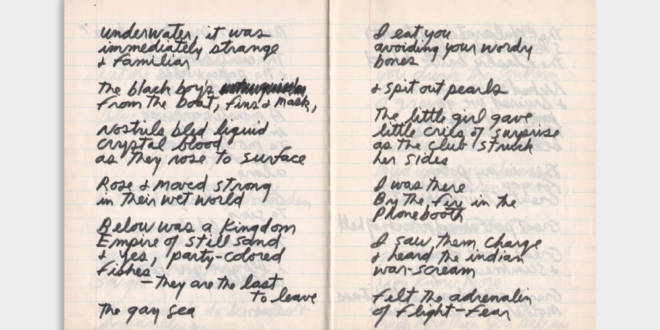 underwater, it was
immediately strange
& familiar
The black boy's
From the boat, fins & mask,
Nostrils bled liquid
crystal blood
as they rose to surface
Rose & moved strong
in their wet world
Below was a Kingdom
Empire of still sand
& yes, party-colored
Fishes
—they are the last
to leave
The gay sea
I eat you
avoiding your wordy
bones
& spit out pearls
The little girl gave
little cries of surprise
as the club struck
her sides
I was there
By the fire in the
Phonebooth
I saw them charge
& heard the indian
war-scream
felt the adrenalin
of flight-fear